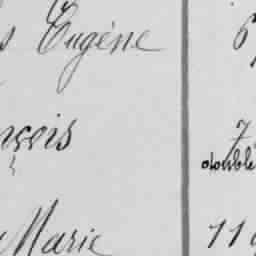 s Eugène 6
nçois 7
double
Marie 11